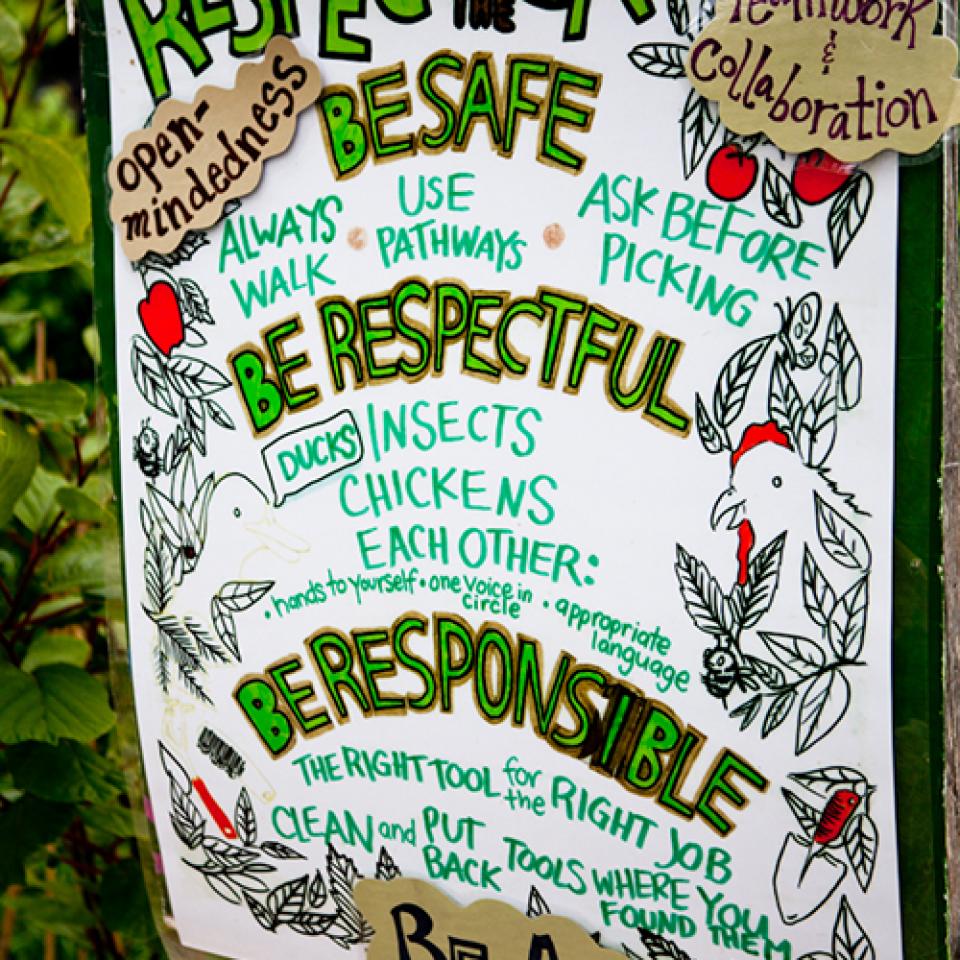 THE
Teamwork
&
Collaboration
Open-
mindedness
BE SAFE
ALWAYS
WALK
• USE
PATHWAYS •
ASK BEFORE
PICKING
BE RESPECTFUL
DUCKS INSECTS
CHICKENS
EACH OTHER:
• hands to yourself • one voice in
circle
• appropriate
language
BE RESPONSIBLE
THE RIGHT TOOL for
the RIGHT JOB
CLEAN and PUT
BACK TOOLS WHERE YOU
FOUND THEM
BE A